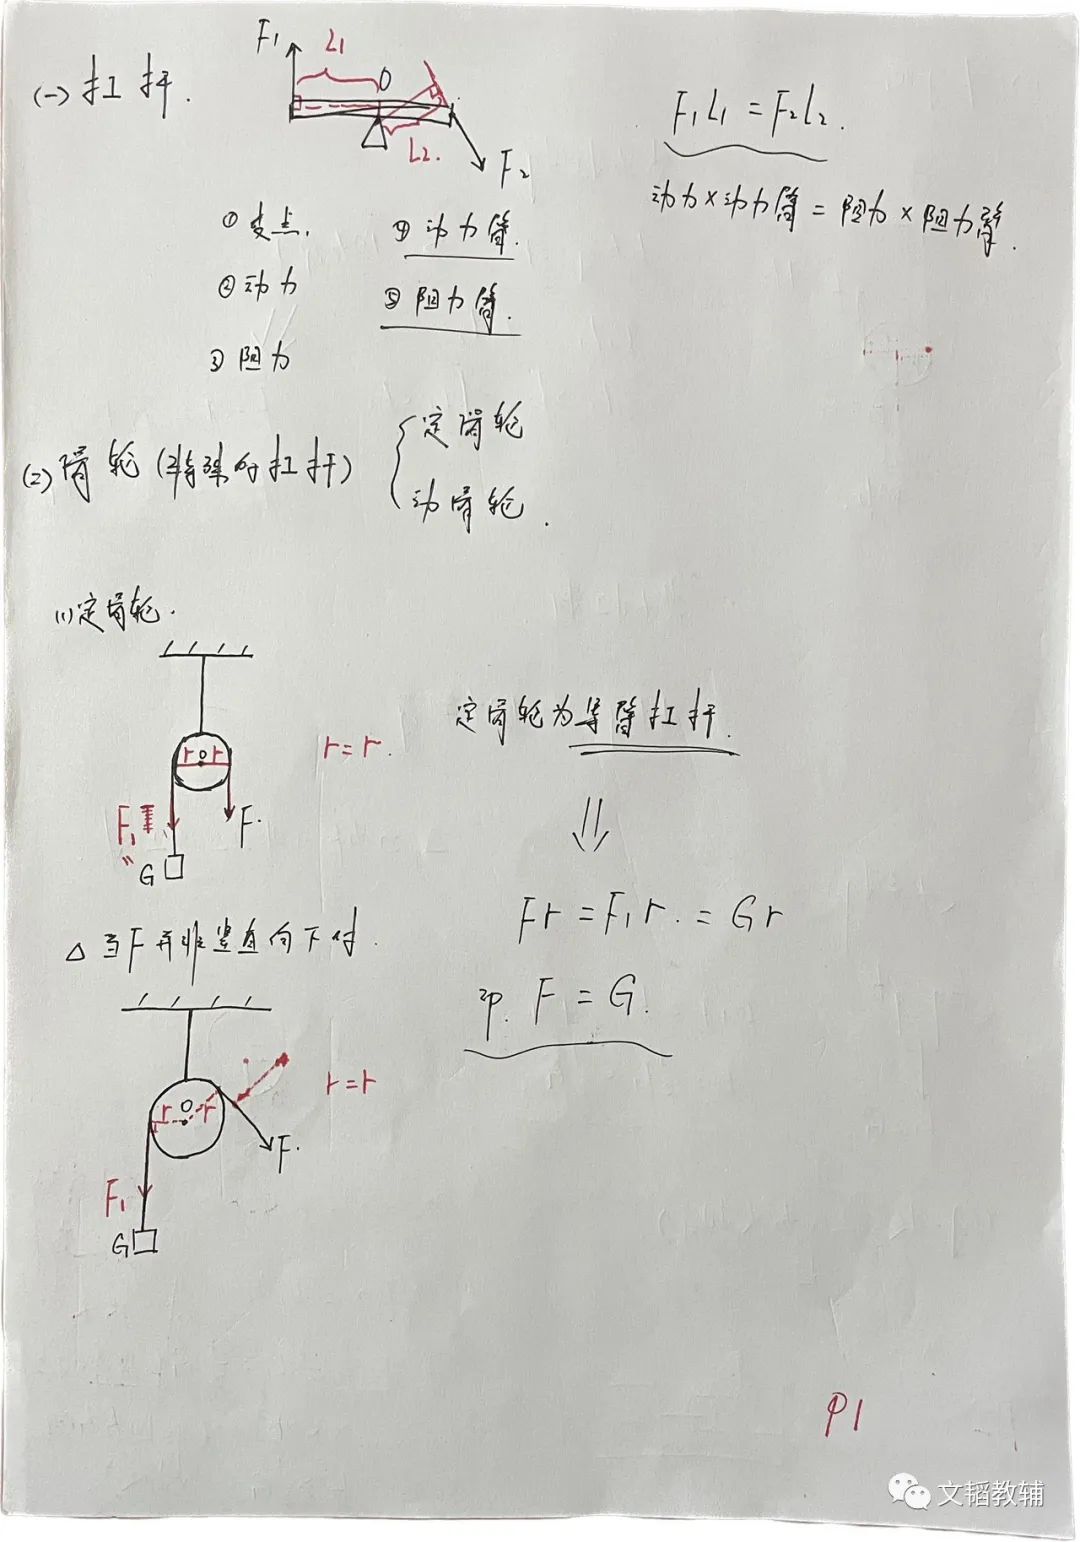 (一) 扛杆.
F₁
L₁
O
L₂.
F₂
F₁L₁ = F₂L₂.
动力×动力臂 = 阻力×阻力臂.
① 支点.
④ 动力臂.
② 动力
⑤ 阻力臂.
③ 阻力
(2) 滑轮 (特殊的扛杆)
定滑轮
动滑轮.
(1) 定滑轮.
r O r
r = r.
F₁
F.
G
定滑轮为等臂扛杆.
⇓
Fr = F₁r. = Gr
即. F = G.
△ 当F并非竖直向下时.
r O r
r = r
F.
F₁
G
P1
文韬教辅